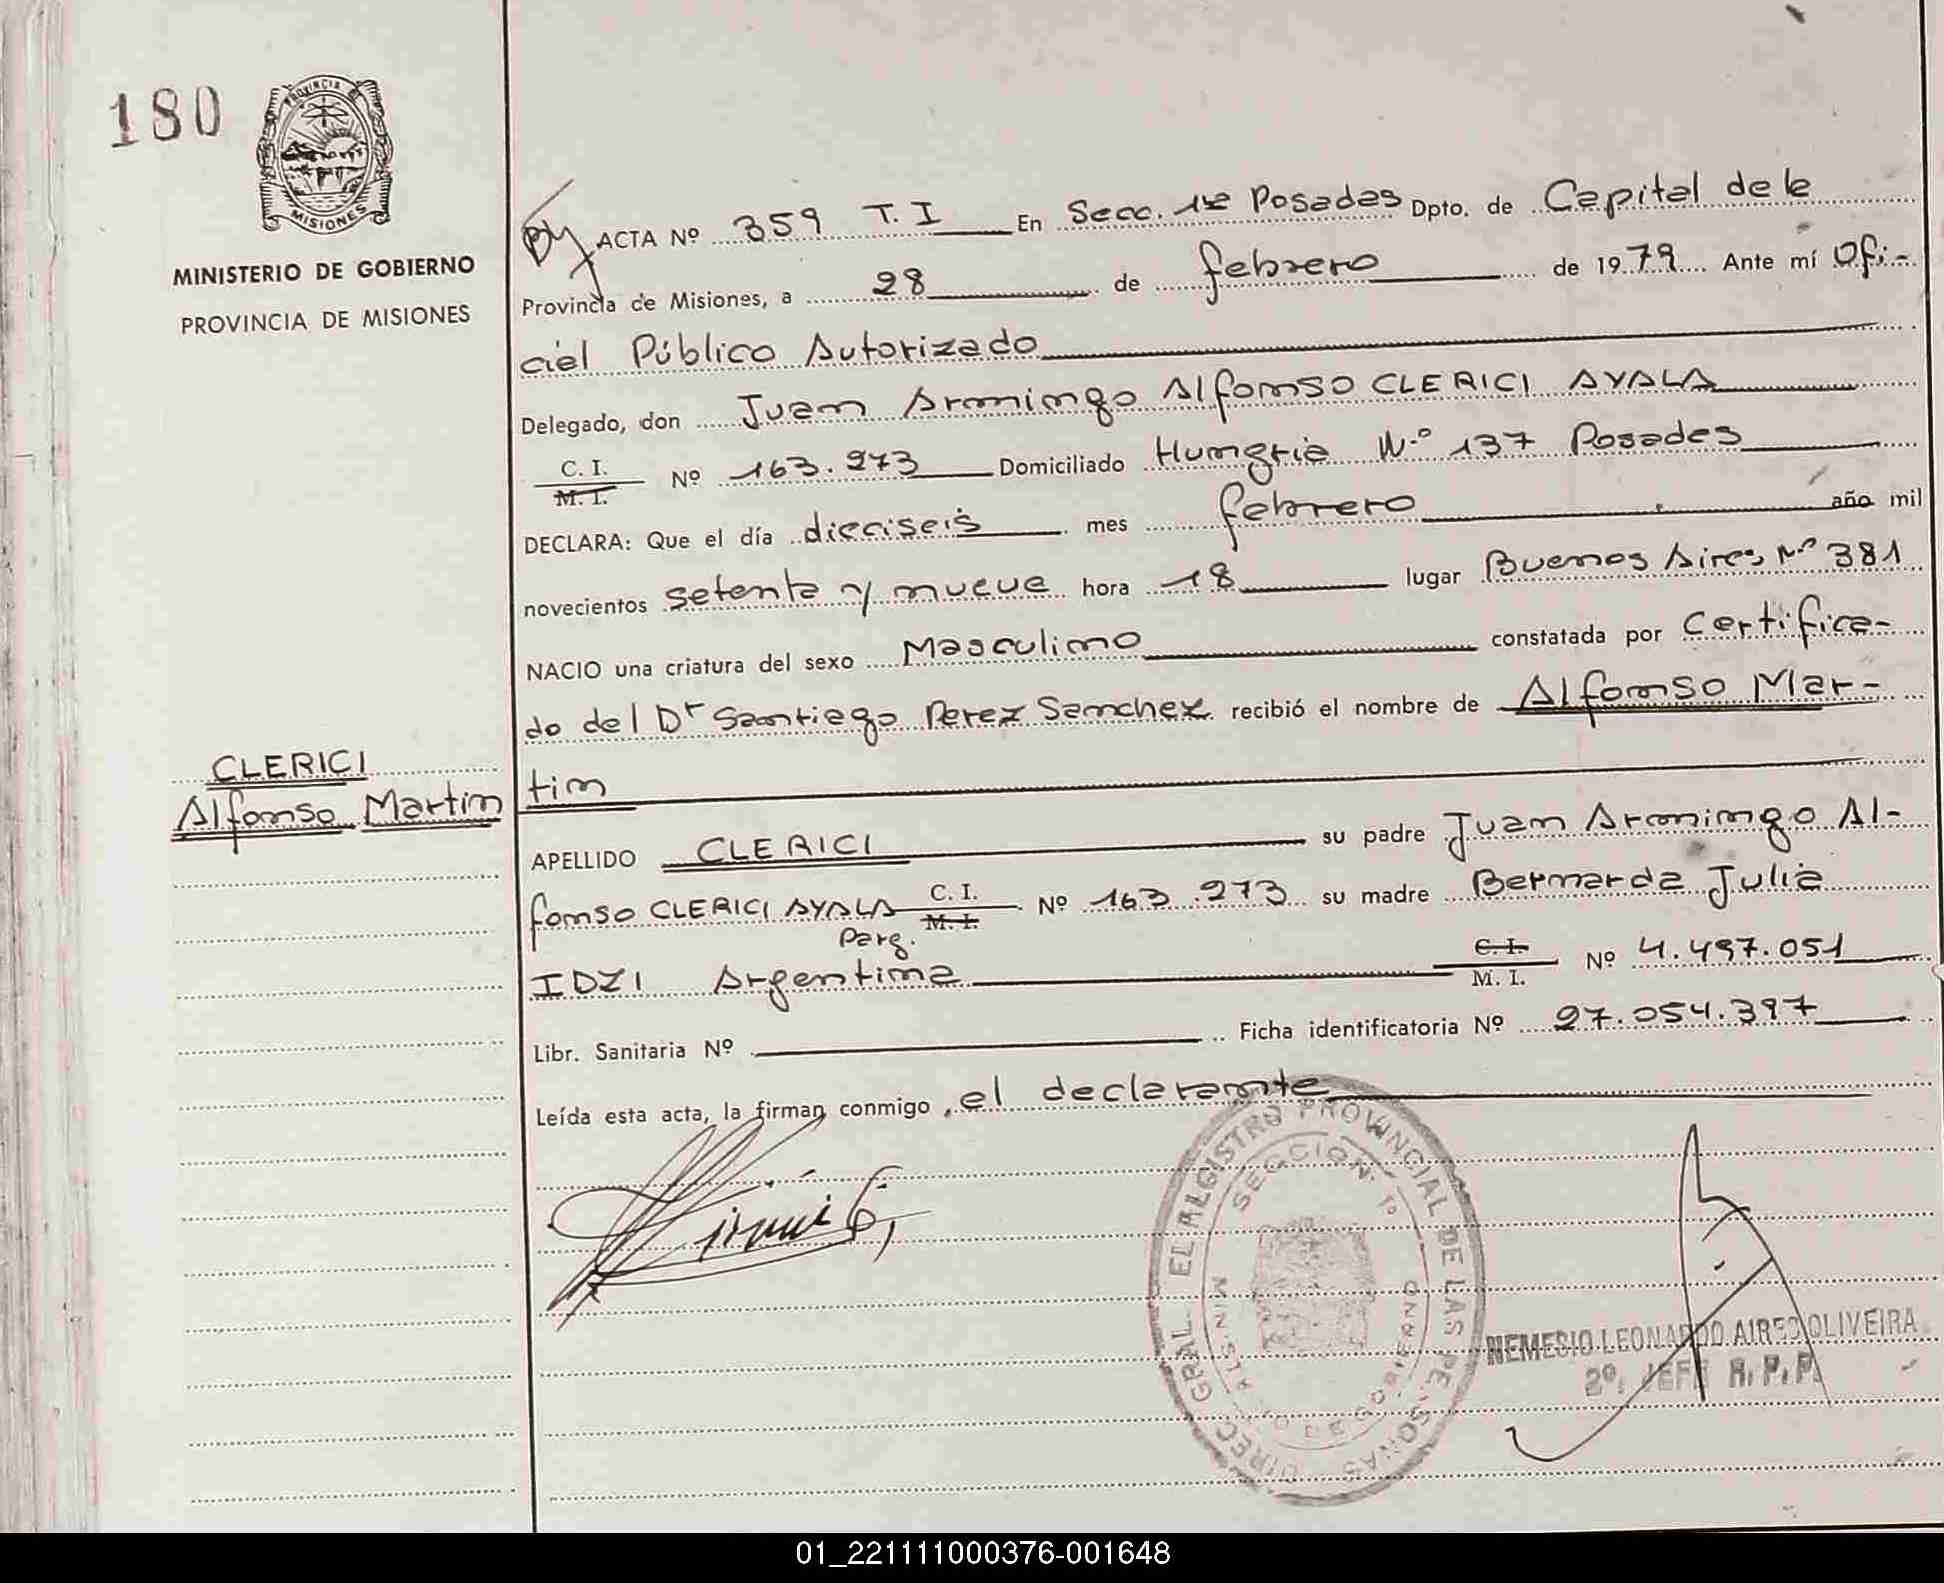 180
PROVINCIA DE
MISIONES
MINISTERIO DE GOBIERNO
PROVINCIA DE MISIONES
CLERICI
Alfonso Martin
ACTA Nº 359 T. I En Secc. 1ra Posadas Dpto. de Capital de la
Provincia de Misiones, a 28 de febrero de 1979 Ante mí Ofi-
cial Público Autorizado
Delegado, don Juan Armingo Alfonso CLERICI AYALA
C. I.
M. I.
Nº 163.273 Domiciliado Hungria N.º 137 Posadas
DECLARA: Que el día dieciseis mes febrero año mil
novecientos setenta y nueve hora 18 lugar Buenos Aires Nº 381
NACIO una criatura del sexo Masculino constatada por Certifica-
do del Dr Santiago Perez Sanchez recibió el nombre de Alfonso Mar-
tin
APELLIDO CLERICI su padre Juan Armingo Al-
fonso CLERICI AYALA C. I. M. I. Nº 163.273 su madre Bernarda Julia
Parg.
IDZI Argentina C. I. M. I. Nº 4.497.051
Libr. Sanitaria Nº Ficha identificatoria Nº 27.054.397
Leída esta acta, la firman conmigo, el declarante
SECCION 1º
NEMESIO LEONARDO AIRES OLIVEIRA
2º. JEFE R. P. P.
01_221111000376-001648